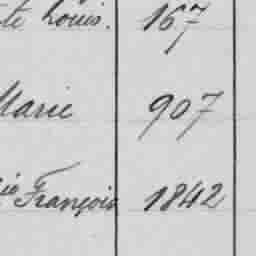 te Louis. 167
Marie 907
ie François 1842